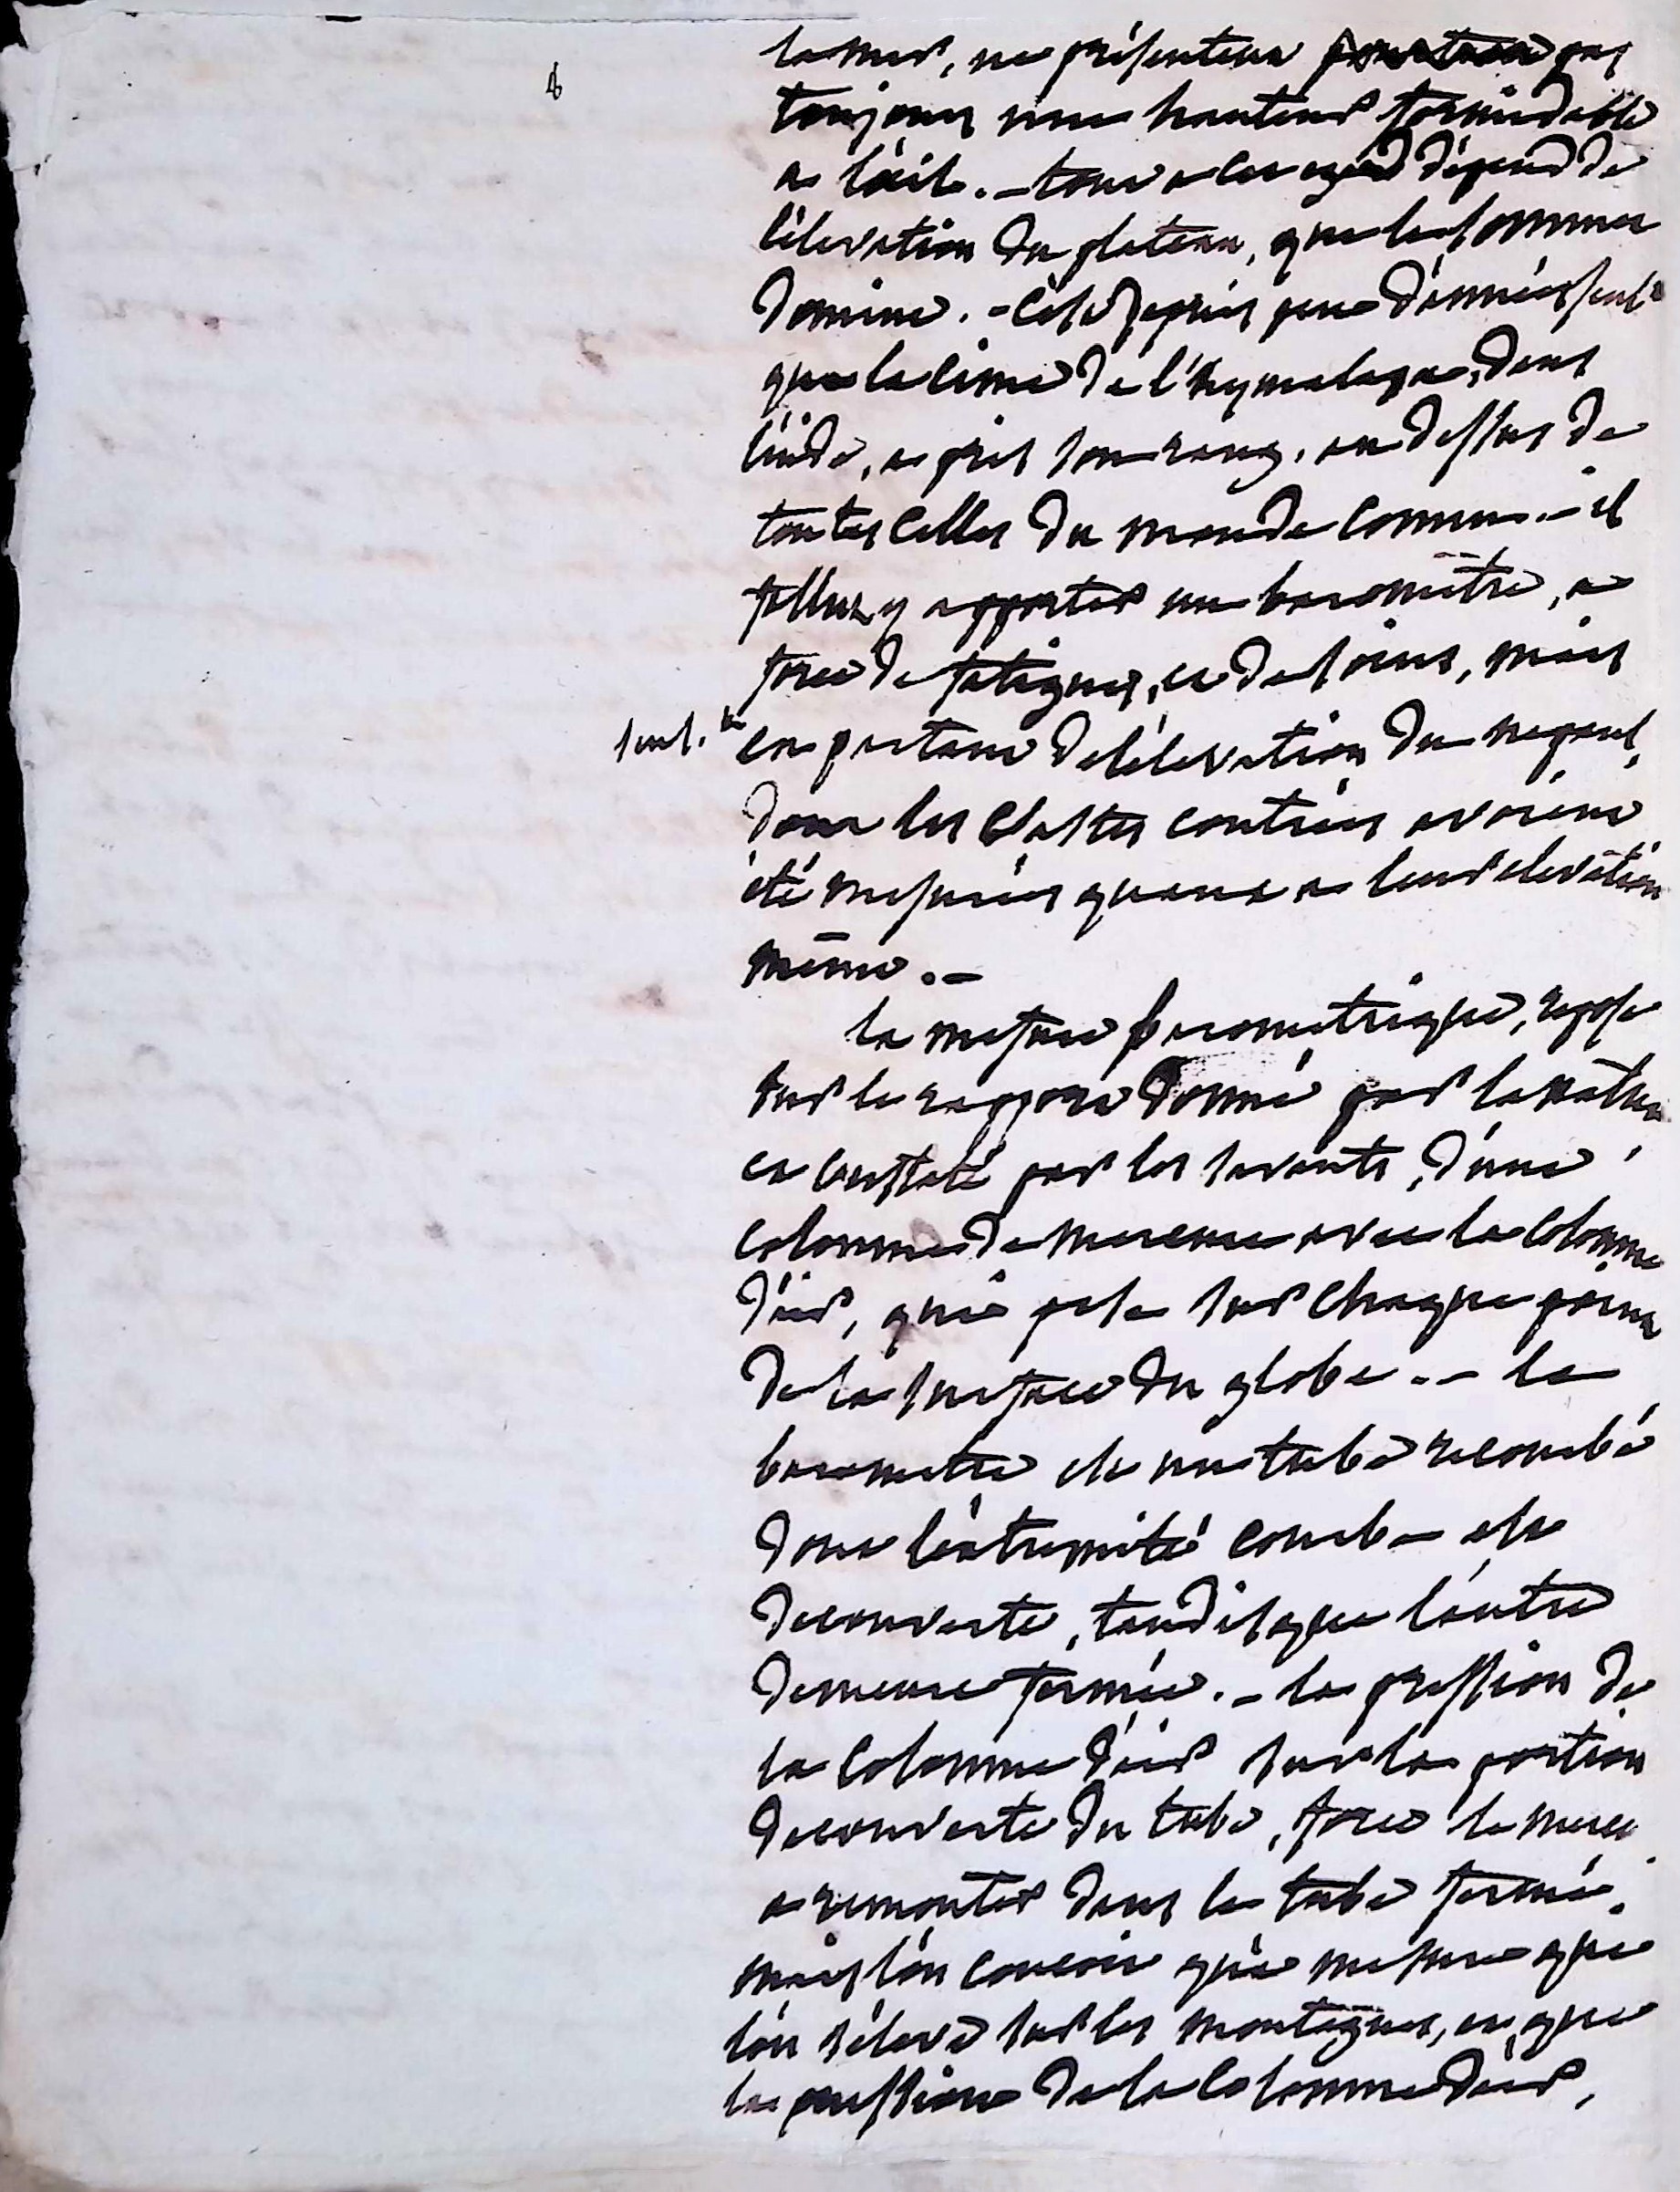 la mer, ne présentent pourtant pas
toujours une hauteur formidable
a l'œil. – tout a cet egard dépend de
l'élevation du plateau, que le sommet
domine. – C'est depuis peu d'années seult
que la cime de l'hymalaya, dans
l'inde, a pris son rang, au dessus de
toutes celles du monde connu. – il
fallut y apporter un barométre, a
force de fatigues, et de soins, mais
seul.t en partant de l'élevation du nepaul,
dont les vastes contrées avoient
été mesurées quant a leur elevation
même. –
la mesure barometrique, repose
sur le rapport donné par la nature
et constaté par les savants, d'une
colonne de mercure avec la colonne
d'air, qui pese sur chaque point
de la surface du globe. – le
barometre est un tube recourbé
dont l'extremité courbe est
decouverte, tandis que l'autre
demeure fermée. – la pression de
la colonne d'air sur la portion
decouverte du tube, force le mercu
a remonter dans le tube fermé.
mais l'on concoit qu'a mesure que
l'on s'éleve sur les montagnes, et que
la pression de la colonne d'air,